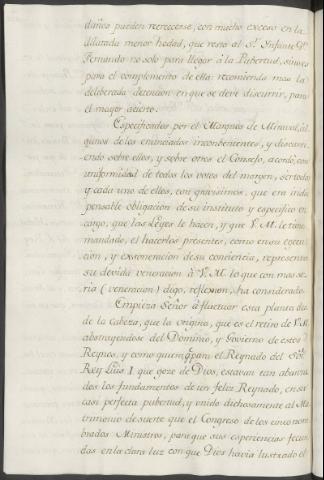 daños pueden recrecerse, con mucho exceso en la
dilatada menor hedad, que resta al Sr. Infante Dn.
Fernando no solo para llegar á la Pubertad, sino es
para el complemento de ella: recomiendo mas la
deliberada detencion en que se deve discurrir, para
el mayor acierto.
Especificados por el Marques de Miraval, al
gunos de los enunciados inconbenientes, y discurri
endo sobre ellos, y sobre otros el Consejo, acordó, con
uniformidad de todos los votos del margen, ser todos
y cada uno de ellos, con gravisimos, que era indis
pensable obligacion de su instituto y especifico en
cargo, que las Leyes le hacen, y que V. M. le tiene
mandado, el hacerlos presentes, como en su egecu
cion, y exoneracion de su conciencia, representa
su devida veneracion á V. M. lo que con mas se
ria (veneracion) digo, reflexion, ha considerado.
Empieza Señor á fluctuar esta planta des
de la Cabeza, que la origina, que es el retiro de V. M.
abstrayendose del Dominio, y Govierno de estos
Reynos, y como quiera q para el Reynado del Sor.
Rey Luis I que goze de Dios, estavan tan abanza
dos los fundamentos de un feliz Reynado, en su
casi perfecta pubertad, y unido dichosamente al Ma
trimonio de suerte que el Congreso de los once nom
brados Ministros, para que sus experiencias fecun
das en la clara luz con que Dios havia ilustrado el